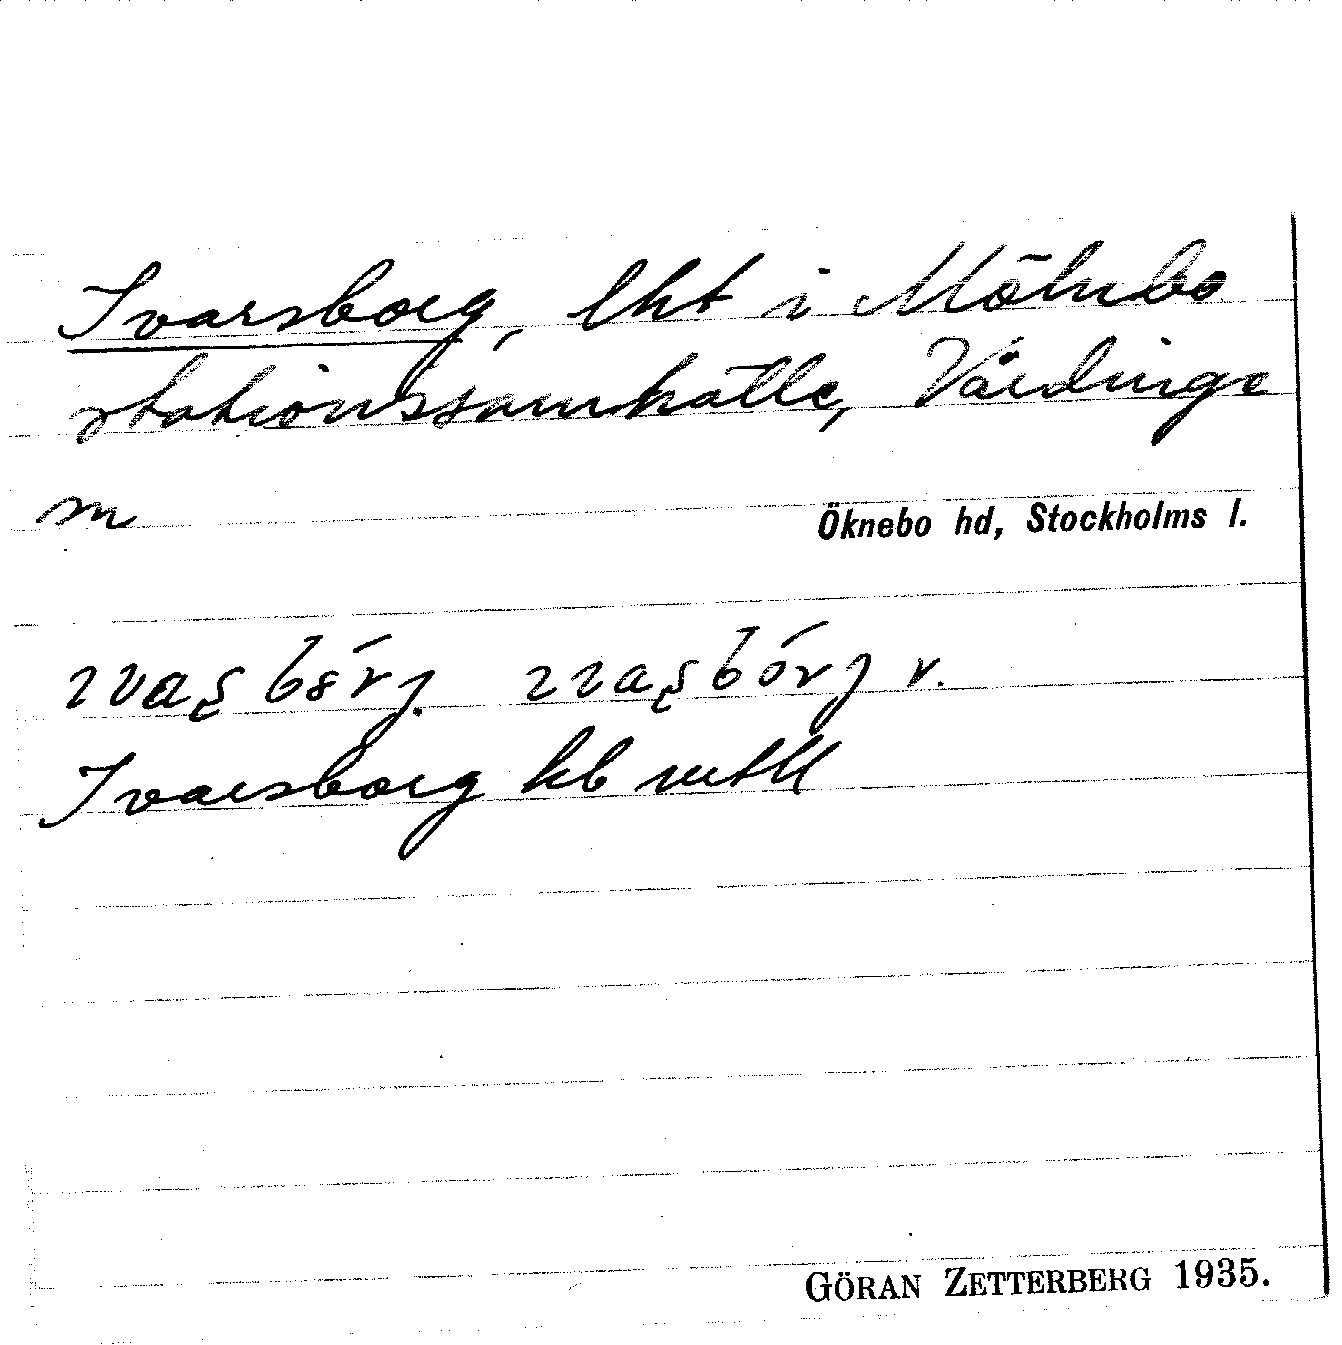 Ivarsborg, lht i Mölnbo
stationssamhälle, Vårdinge
sn
Öknebo hd, Stockholms l.
Ivarsborg kb mtll
GÖRAN ZETTERBERG 1935.